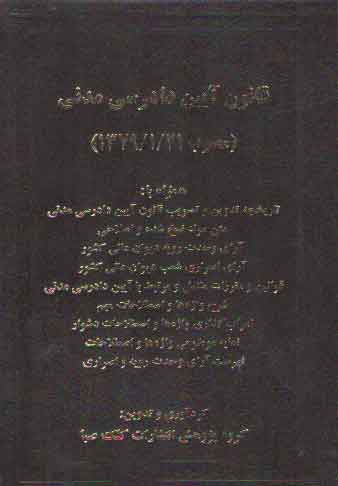 قانون آیین دادرسی مدنی
(مصوب ۱۳۷۹/۱/۲۱)
همراه با:
تاریخچه تدوین و تصویب قانون آیین دادرسی مدنی
متن مواد نسخ شده و اصلاحی
آرای وحدت رویه دیوان عالی کشور
آرای اصراری شعب دیوان عالی کشور
قوانین و مقررات متقابل و مرتبط با آیین دادرسی مدنی
شرح واژه‌ها و اصطلاحات مهم
اعراب گذاری واژه‌ها و اصطلاحات دشوار
نمایه موضوعی واژه‌ها و اصطلاحات
فهرست آرای وحدت رویه و اصراری
گردآوری و تدوین:
گروه پژوهش انتشارات کتاب صبا